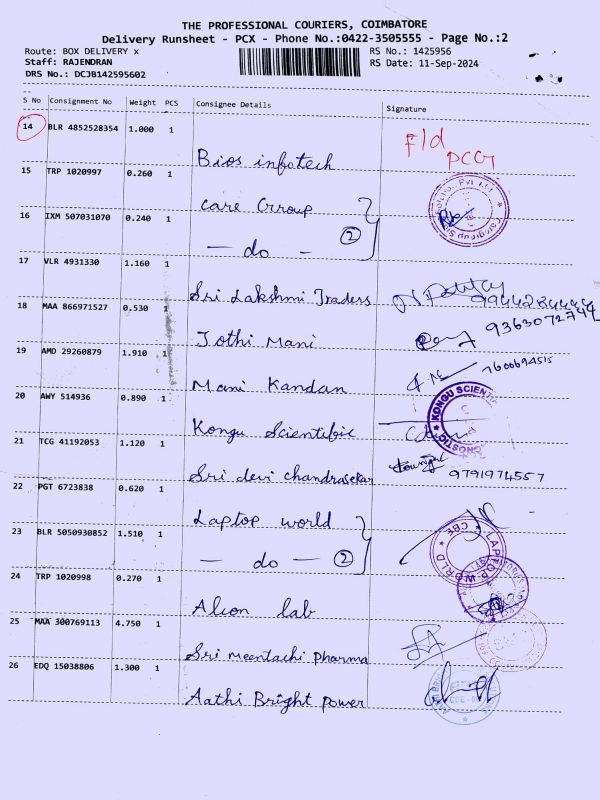 THE PROFESSIONAL COURIERS, COIMBATORE
Delivery Runsheet - PCX - Phone No.:0422-3505555 - Page No.:2
Route: BOX DELIVERY x RS No.: 1425956
Staff: RAJENDRAN RS Date: 11-Sep-2024
DRS No.: DCJB142595602
S No Consignment No Weight PCS Consignee Details Signature
14 BLR 4852528354 1.000 1 Bios infotech F/d
15 TRP 1020997 0.260 1 Care Group
16 IXM 507031070 0.240 1 — do — 2
17 VLR 4931330 1.160 1 Sri Lakshmi Traders
18 MAA 866971527 0.530 1 Jothi Mani 9363072744
19 AMD 29260879 1.910 1 Mani Kandan 7600694515
20 AWY 514936 0.890 1 Kongu Scientific KONGU SCIENTIFIC
21 TCG 41192053 1.120 1 Sri devi Chandrasekar 9791974557
22 PGT 6723838 0.620 1 Laptop world
23 BLR 5050930852 1.510 1 — do — 2 LAPTOP WORLD CBE
24 TRP 1020998 0.270 1 Alion lab
25 MAA 300769113 4.750 1 Sri Meentachi Pharma
26 EDQ 15038806 1.300 1 Aathi Bright Power